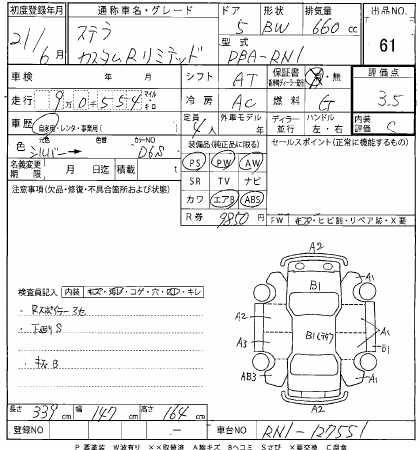 初度登録年月 通称車名・グレード ドア 形状 排気量 出品NO.
21/6月 ステラ カスタムRリミテッド 5 BW 660cc 61
型式 DBA-RN1
車検 年 月 シフト AT 保証書 有・無 評価点
走行 9万0千554 マイル キロ 冷房 AC 燃料 G 3.5
車歴 自家用・レンタ・事業用( ) 定員 4人 外車モデル年 ディラー 並行 ハンドル 左・右 内装評価 C
色 元色 シルバー → 色替 カラーNO D6S 装備品(純正品に限る) セールスポイント(正常に機能するもの)
名義変更期限 月 日迄 積載 t PS PW AW
注意事項(欠品・修復・不具合箇所および状態) SR TV ナビ
カワ エアB ABS
R券 9850円 FW キズ・ヒビ割・リペア跡・X要
A2
検査員記入 内装 キズ・汚れ・コゲ・穴・キレ
B1 A1
A2 A1
B1
A3 B1
AB3 A1
A2
キズB
長さ 339cm 幅 147cm 高さ 164cm
登録NO - 車台NO RN1-127551
P 要塗装 W波有り ××取替済 A線キズ Bヘコミ Sさび ×要交換 C腐食